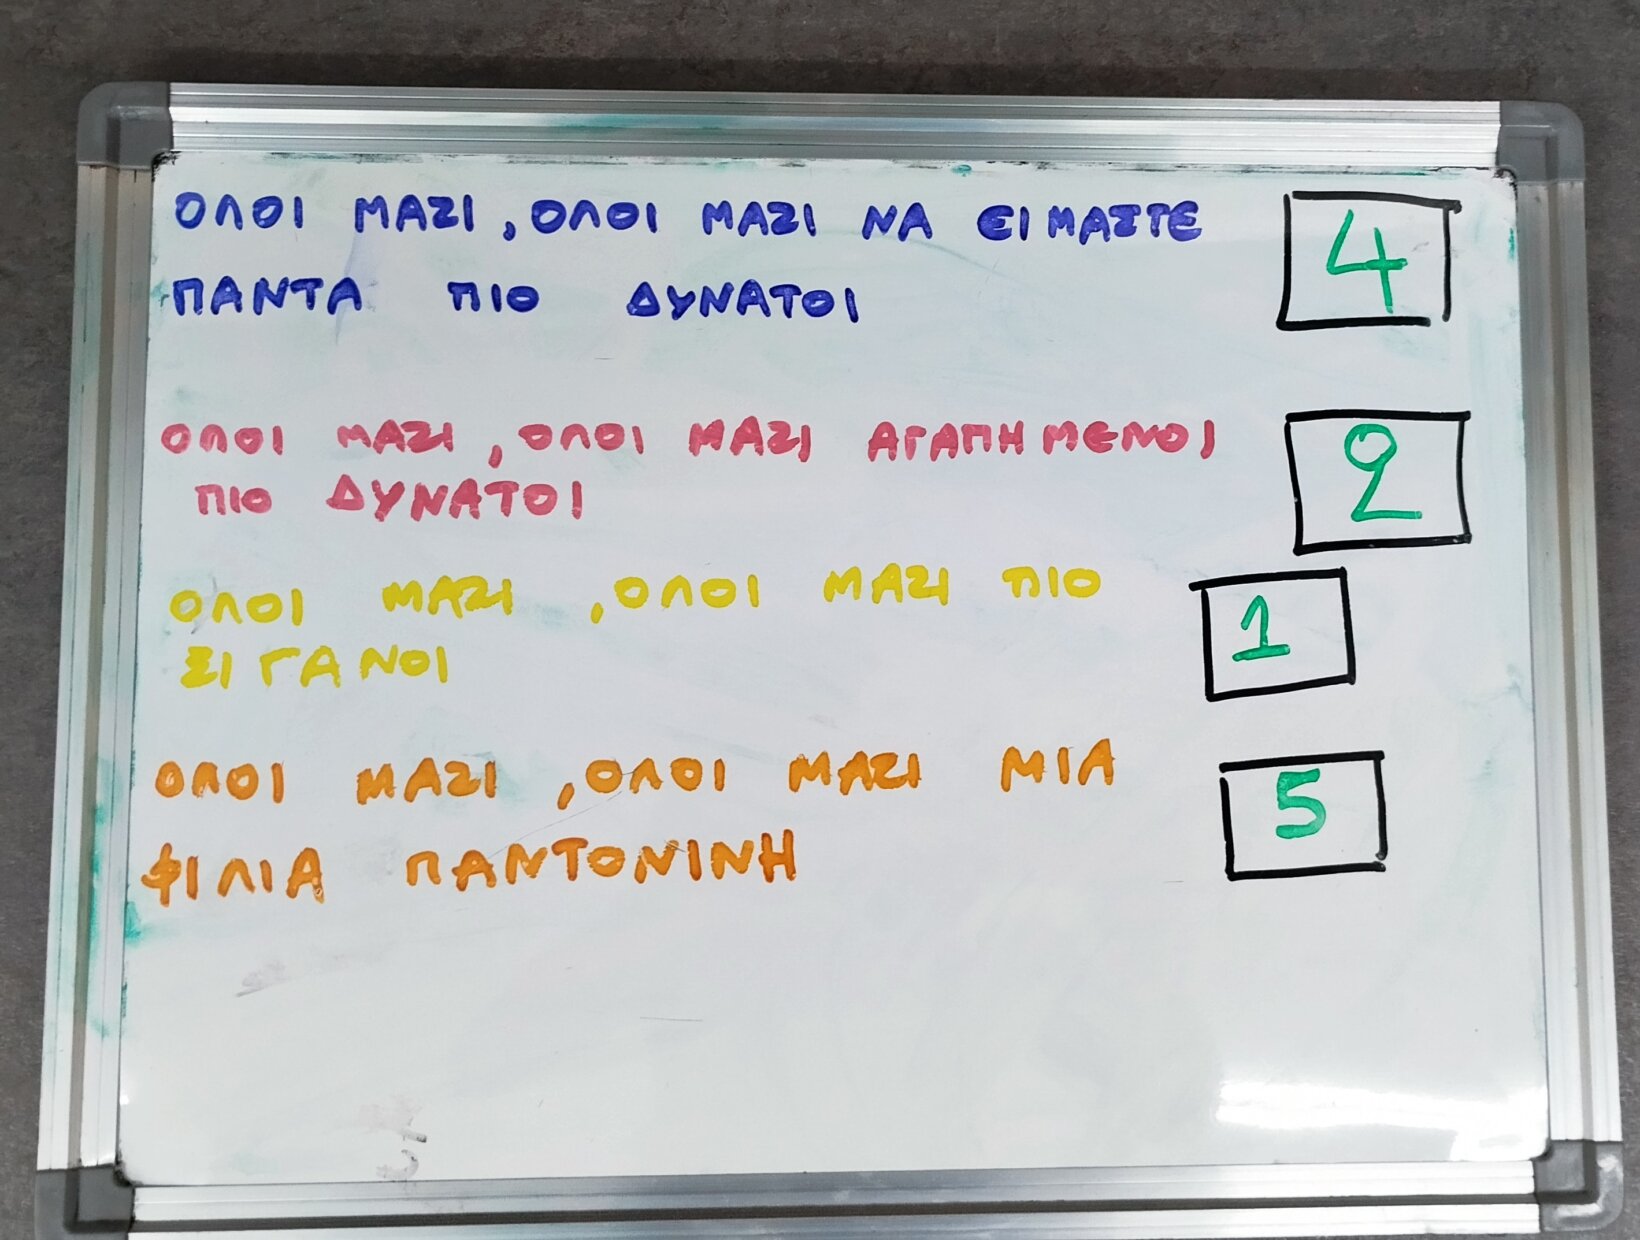 ΟΛΟΙ ΜΑΖΙ, ΟΛΟΙ ΜΑΖΙ ΝΑ ΕΙΜΑΣΤΕ 4
ΠΑΝΤΑ ΠΙΟ ΔΥΝΑΤΟΙ
ΟΛΟΙ ΜΑΖΙ, ΟΛΟΙ ΜΑΖΙ ΑΓΑΠΗΜΕΝΟΙ 2
ΠΙΟ ΔΥΝΑΤΟΙ
ΟΛΟΙ ΜΑΖΙ, ΟΛΟΙ ΜΑΖΙ ΠΙΟ 1
ΣΙΓΑΝΟΙ
ΟΛΟΙ ΜΑΖΙ, ΟΛΟΙ ΜΑΖΙ ΜΙΑ 5
ΦΙΛΙΑ ΠΑΝΤΟΝΙΝΗ